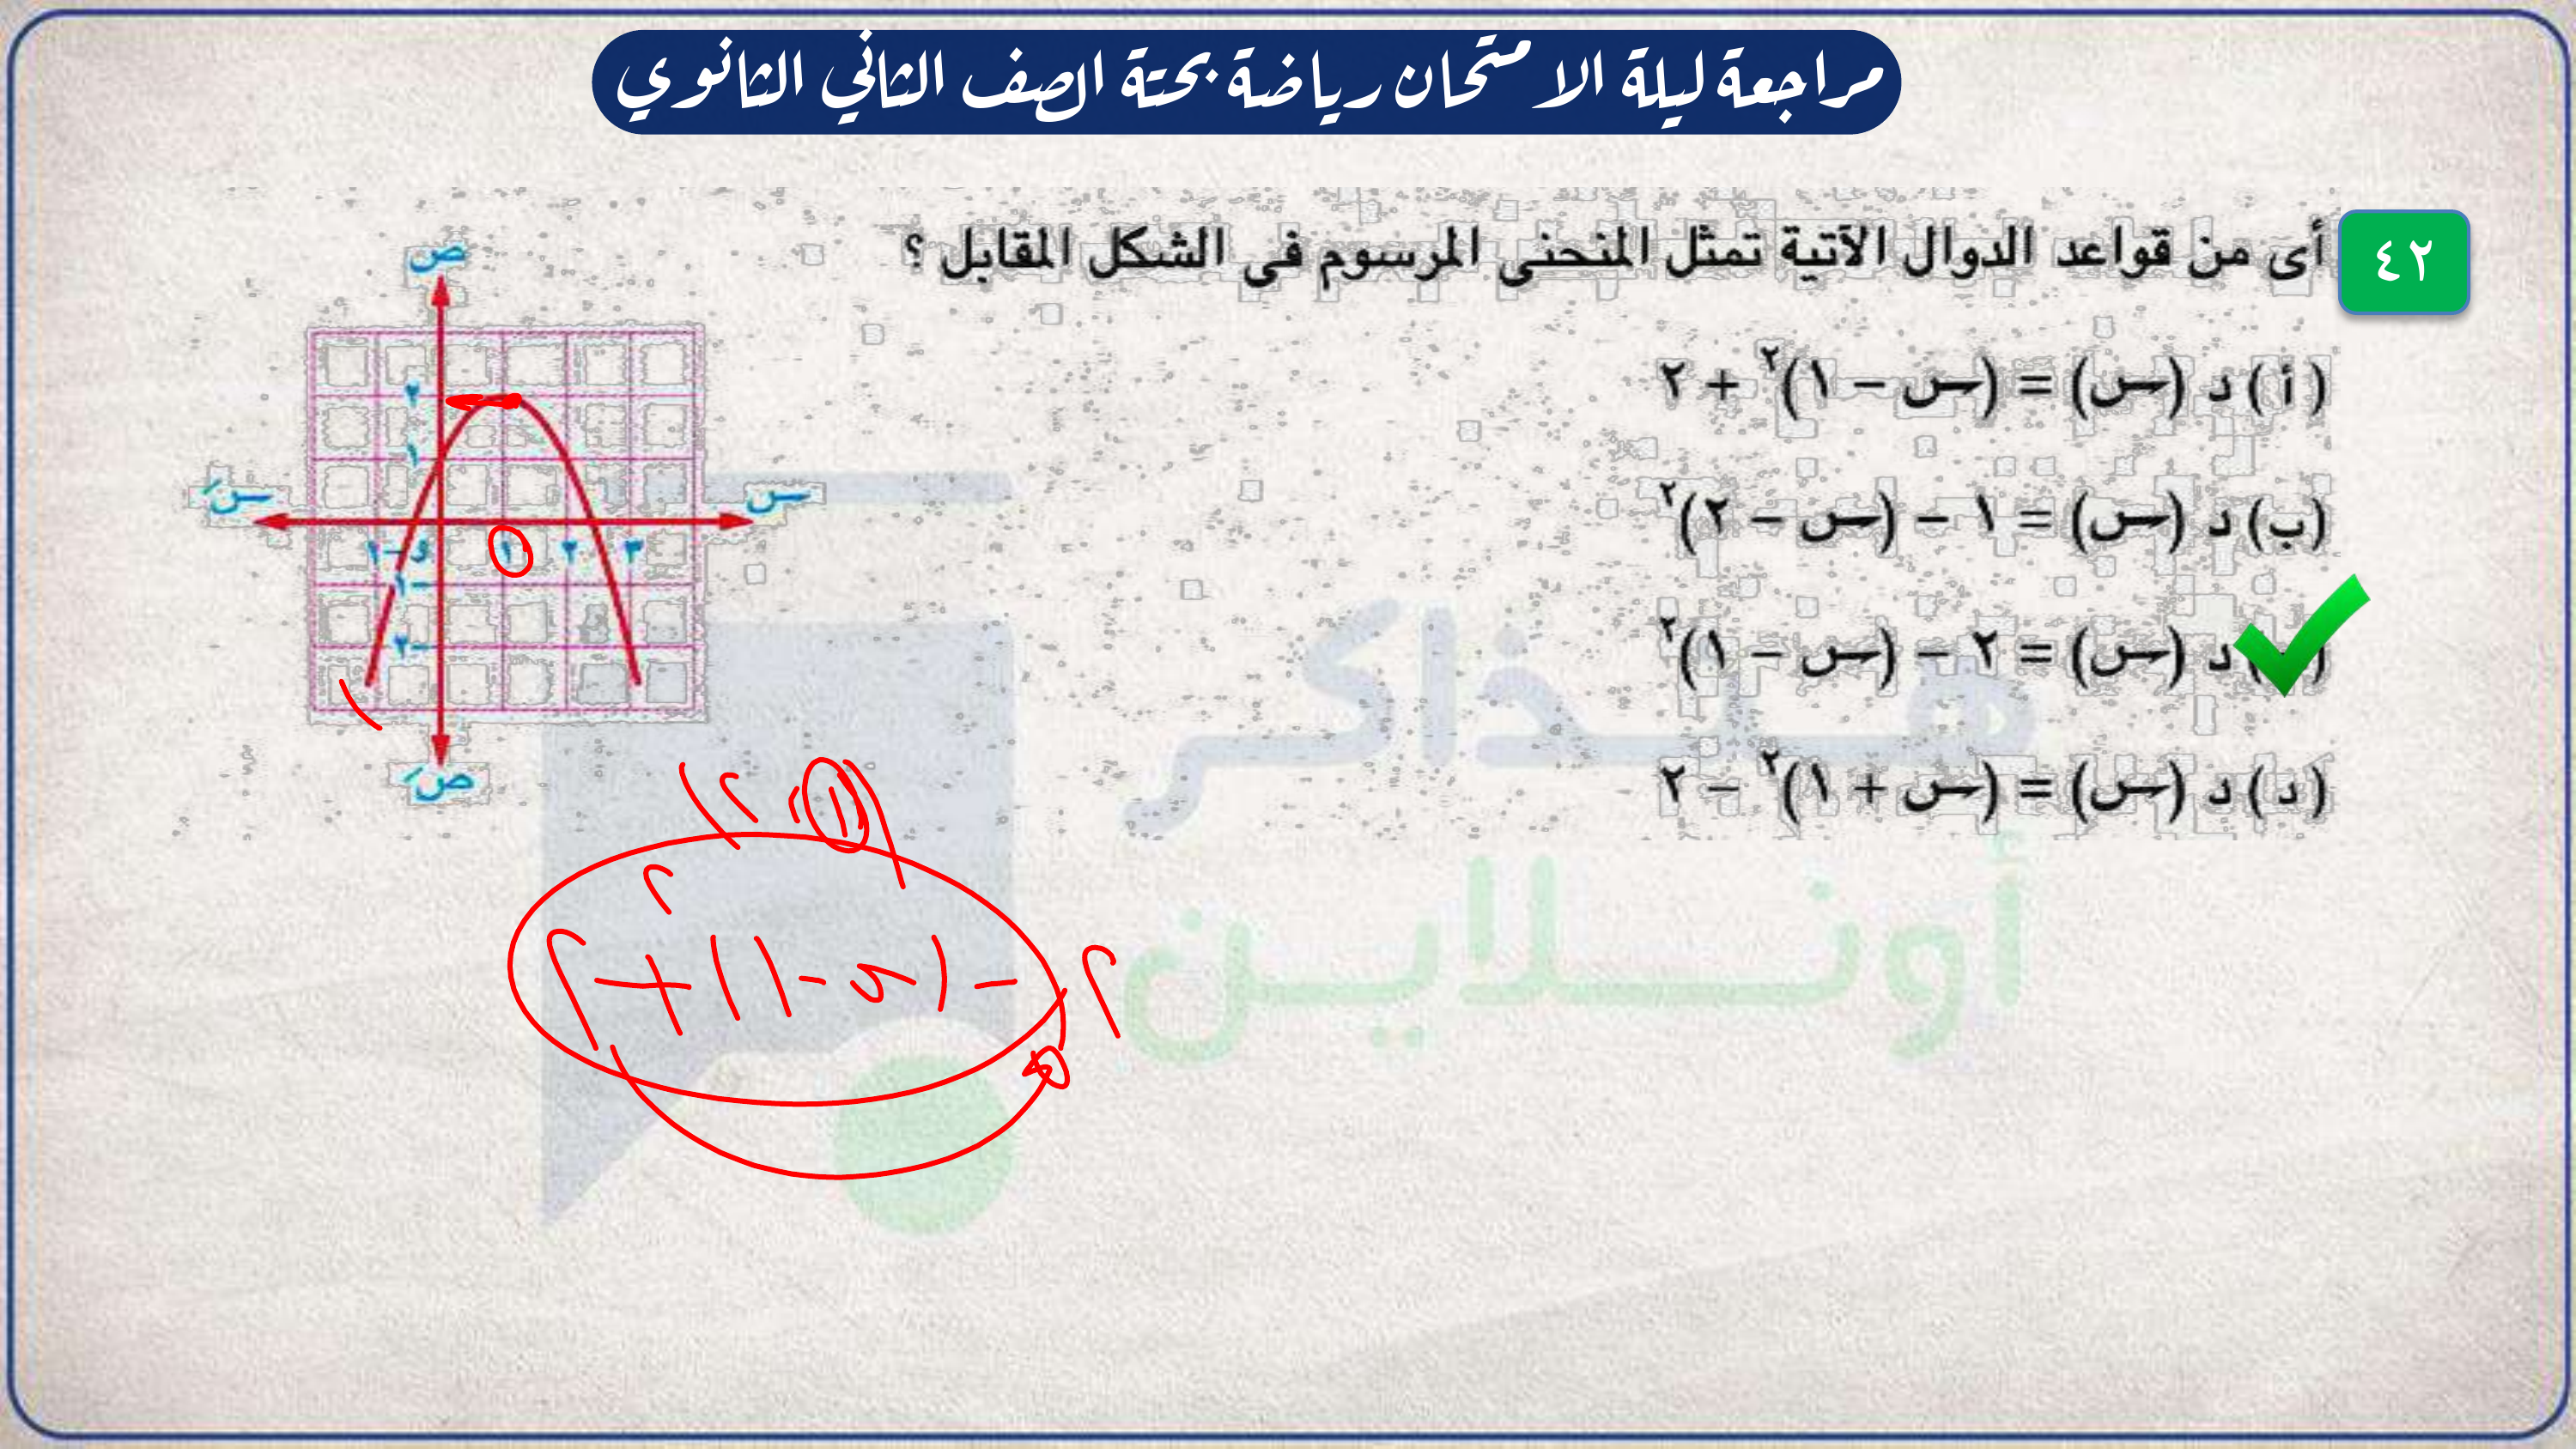 مراجعة ليلة الامتحان رياضة بحتة الصف الثاني الثانوي
٤٢
أى من قواعد الدوال الآتية تمثل المنحنى المرسوم فى الشكل المقابل ؟
( أ ) د (س) = (س − ١)٢ + ٢
(ب) د (س) = ١ − (س − ٢)٢
د (س) = ٢ − (س − ١)٢
( د ) د (س) = (س + ١)٢ − ٢
ص
٢
١
س
سَ
−١
و
١
٢
٣
−١
−٢
صَ
(١ ، ٢)
− (س − ١)٢ + ٢
٢
مذاكر
أونلاين